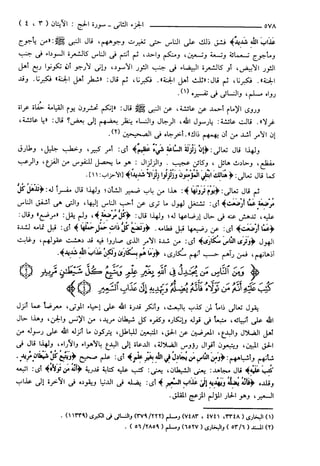 ٥٧٨ الجزء الثانى ــ سورة الحج : الآيتان ( ٣ ، ٤ )
عَذَابَ اللَّهِ شَدِيدٌ﴾ فشق ذلك على الناس حتى تغيرت وجوههم، قال النبى ﷺ: «من يأجوج
ومأجوج تسعمائة وتسعة وتسعين، ومنكم واحد، ثم أنتم فى الناس كالشعرة السوداء فى جنب
الثور الأبيض، أو كالشعرة البيضاء فى جنب الثور الأسود، وإنى لأرجو أن تكونوا ربع أهل
الجنة». فكبرنا، ثم قال: «ثلث أهل الجنة». فكبرنا، ثم قال: «شطر أهل الجنة» فكبرنا. وقد
رواه مسلم، والنسائى فى تفسيره (١).
وروى الإمام أحمد عن عائشة، عن النبى ﷺ قال: «إنكم تحشرون يوم القيامة حفاة عراة
غرلا». قالت عائشة: يارسول الله، الرجال والنساء ينظر بعضهم إلى بعض؟ قال: «يا عائشة،
إن الأمر أشد من أن يهمهم ذاك». أخرجاه فى الصحيحين (٢).
ولهذا قال تعالى: ﴿إِنَّ زَلْزَلَةَ السَّاعَةِ شَيْءٌ عَظِيمٌ﴾ أى: أمر كبير، وخطب جليل، وطارق
مفظع، وحادث هائل، وكائن عجيب. والزلزال: هو ما يحصل للنفوس من الفزع، والرعب
كما قال تعالى: ﴿هُنَالِكَ ابْتُلِيَ الْمُؤْمِنُونَ وَزُلْزِلُوا زِلْزَالًا شَدِيدًا﴾ [الأحزاب: ١١].
ثم قال تعالى: ﴿يَوْمَ تَرَوْنَهَا﴾: هذا من باب ضمير الشأن؛ ولهذا قال مفسراً له: ﴿تَذْهَلُ كُلُّ
مُرْضِعَةٍ عَمَّا أَرْضَعَتْ﴾ أى: تشتغل لهول ما ترى عن أحب الناس إليها، والتى هى أشفق الناس
عليه، تدهش عنه فى حال إرضاعها له؛ ولهذا قال: ﴿كُلُّ مُرْضِعَةٍ﴾، ولم يقل: «مرضع» وقال:
﴿عَمَّا أَرْضَعَتْ﴾ أى: عن رضيعها قبل فطامه. ﴿وَتَضَعُ كُلُّ ذَاتِ حَمْلٍ حَمْلَهَا﴾ أى: قبل تمامه لشدة
الهول ﴿وَتَرَى النَّاسَ سُكَارَى﴾ أى: من شدة الأمر الذى صاروا فيه قد دهشت عقولهم، وغابت
أذهانهم، فمن رآهم حسب أنهم سكارى، ﴿وَمَا هُم بِسُكَارَى وَلَكِنَّ عَذَابَ اللَّهِ شَدِيدٌ﴾.
﴿وَمِنَ النَّاسِ مَن يُجَادِلُ فِي اللَّهِ بِغَيْرِ عِلْمٍ وَيَتَّبِعُ كُلَّ شَيْطَانٍ مَّرِيدٍ ٣
كُتِبَ عَلَيْهِ أَنَّهُ مَن تَوَلَّاهُ فَأَنَّهُ يُضِلُّهُ وَيَهْدِيهِ إِلَى عَذَابِ السَّعِيرِ ٤﴾
يقول تعالى ذاماً لمن كذب بالبعث، وأنكر قدرة الله على إحياء الموتى، معرضاً عما أنزل
الله على أنبيائه، متبعاً فى قوله وإنكاره وكفره كل شيطان مريد، من الإنس والجن، وهذا حال
أهل الضلال والبدع، المعرضين عن الحق، المتبعين للباطل، يتركون ما أنزله الله على رسوله من
الحق المبين، ويتبعون أقوال رؤوس الضلالة، الدعاة إلى البدع بالأهواء والآراء، ولهذا قال فى
شأنهم وأشباههم: ﴿وَمِنَ النَّاسِ مَن يُجَادِلُ فِي اللَّهِ بِغَيْرِ عِلْمٍ﴾ أى: علم صحيح ﴿وَيَتَّبِعُ كُلَّ شَيْطَانٍ مَّرِيدٍ.
كُتِبَ عَلَيْهِ﴾ قال مجاهد: يعنى الشيطان، يعنى: كتب عليه كتابة قدرية ﴿أَنَّهُ مَن تَوَلَّاهُ﴾ أى: اتبعه
وقلده، ﴿فَأَنَّهُ يُضِلُّهُ وَيَهْدِيهِ إِلَى عَذَابِ السَّعِيرِ﴾ أى: يضله فى الدنيا ويقوده فى الآخرة إلى عذاب
السعير، وهو الحار المؤلم المزعج المقلق.
(١) البخارى (٣٣٤٨، ٤٧٤١، ٧٤٨٣) ومسلم (٣٧٩/٢٢٢) والنسائى فى الكبرى (١١٣٣٩).
(٢) المسند (٥٣/٦) والبخارى (٦٥٢٧) ومسلم (٥٦/٢٨٥٩).